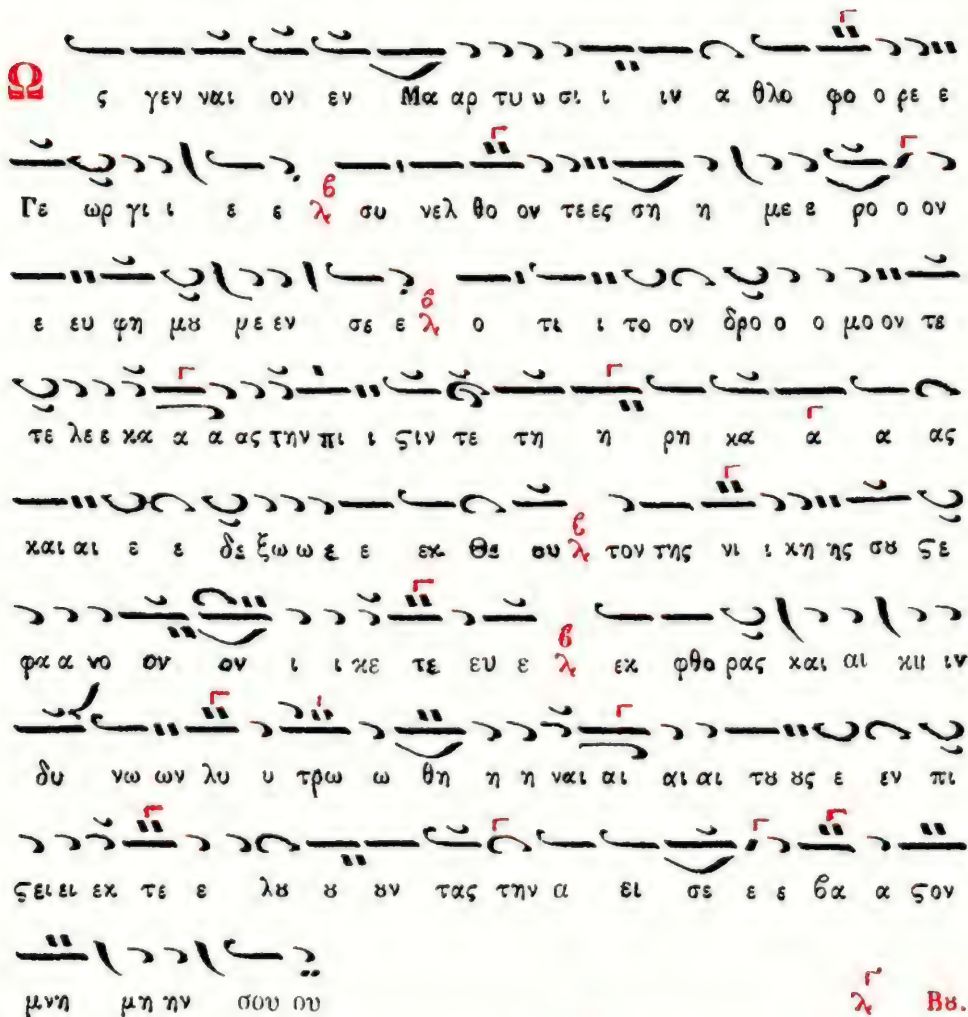 Ω ς γεν ναι ον εν Μα αρ τυ ω σι ι ιν α θλο φο ο ρε ε
Γε ωρ γι ι ε ε λ β συ νελ θο ον τεες ση η με ε ρο ο ον
ε ευ φη μȣ με εν σε ε λ ο τι ι το ον δρο ο ο μο ον τε
τε λε ε κα α α ας την πι ι ϛιν τε τη η ρη κα α α ας
και αι ε ε δε ξω ω ε ε εκ Θε ου λ τον της νι ι κη ης σȣ ϛε
φα α νο ον ον ι ι κε τε ευ ε λ β εκ φθο ρας και αι κιι ιν
δυ νω ων λυ υ τρω ω θη η η ναι αι αι αι τȣ ȣς ε εν πι
ϛει ει εκ τε ε λȣ ȣ ȣν τας την α ει σε ε ε βα α ϛον
μνη μη ην σου ου λ Βȣ.